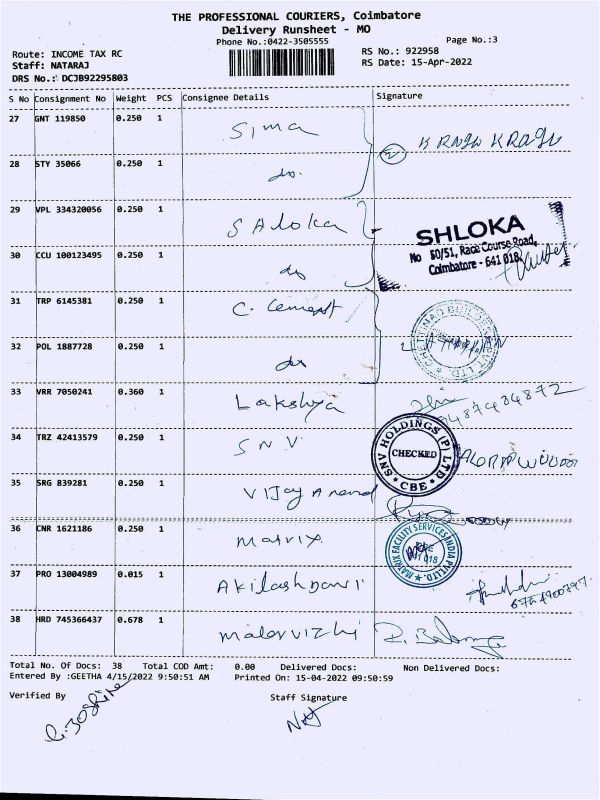 THE PROFESSIONAL COURIERS, Coimbatore
Delivery Runsheet - MO
Phone No.:0422-3505555
Page No.:3
Route: INCOME TAX RC
RS No.: 922958
Staff: NATARAJ
RS Date: 15-Apr-2022
DRS No.: DCJB92295803
S No Consignment No Weight PCS Consignee Details Signature
27 GNT 119850 0.250 1 Sima
28 STY 35066 0.250 1 do
29 VPL 334320056 0.250 1 SAloka
SHLOKA
No 50/51, Race Course Road,
Coimbatore - 641 018.
30 CCU 100123495 0.250 1 do
31 TRP 6145381 0.250 1 C. Cement
32 POL 1887728 0.250 1 do
33 VRR 7050241 0.360 1 Lakshya
34 TRZ 42413579 0.250 1 SNV
SNV HOLDINGS (P) LTD
CHECKED
CBE
35 SRG 839281 0.250 1 Vijay Anand
36 CNR 1621186 0.250 1 matrix
MATRIX FACILITY SERVICES INDIA PVT LTD.
37 PRO 13004989 0.015 1 Akilashwari
38 HRD 745366437 0.678 1 malarvizhi
Total No. Of Docs: 38 Total COD Amt: 0.00 Delivered Docs: Non Delivered Docs:
Entered By :GEETHA 4/15/2022 9:50:51 AM Printed On: 15-04-2022 09:50:59
Verified By Staff Signature